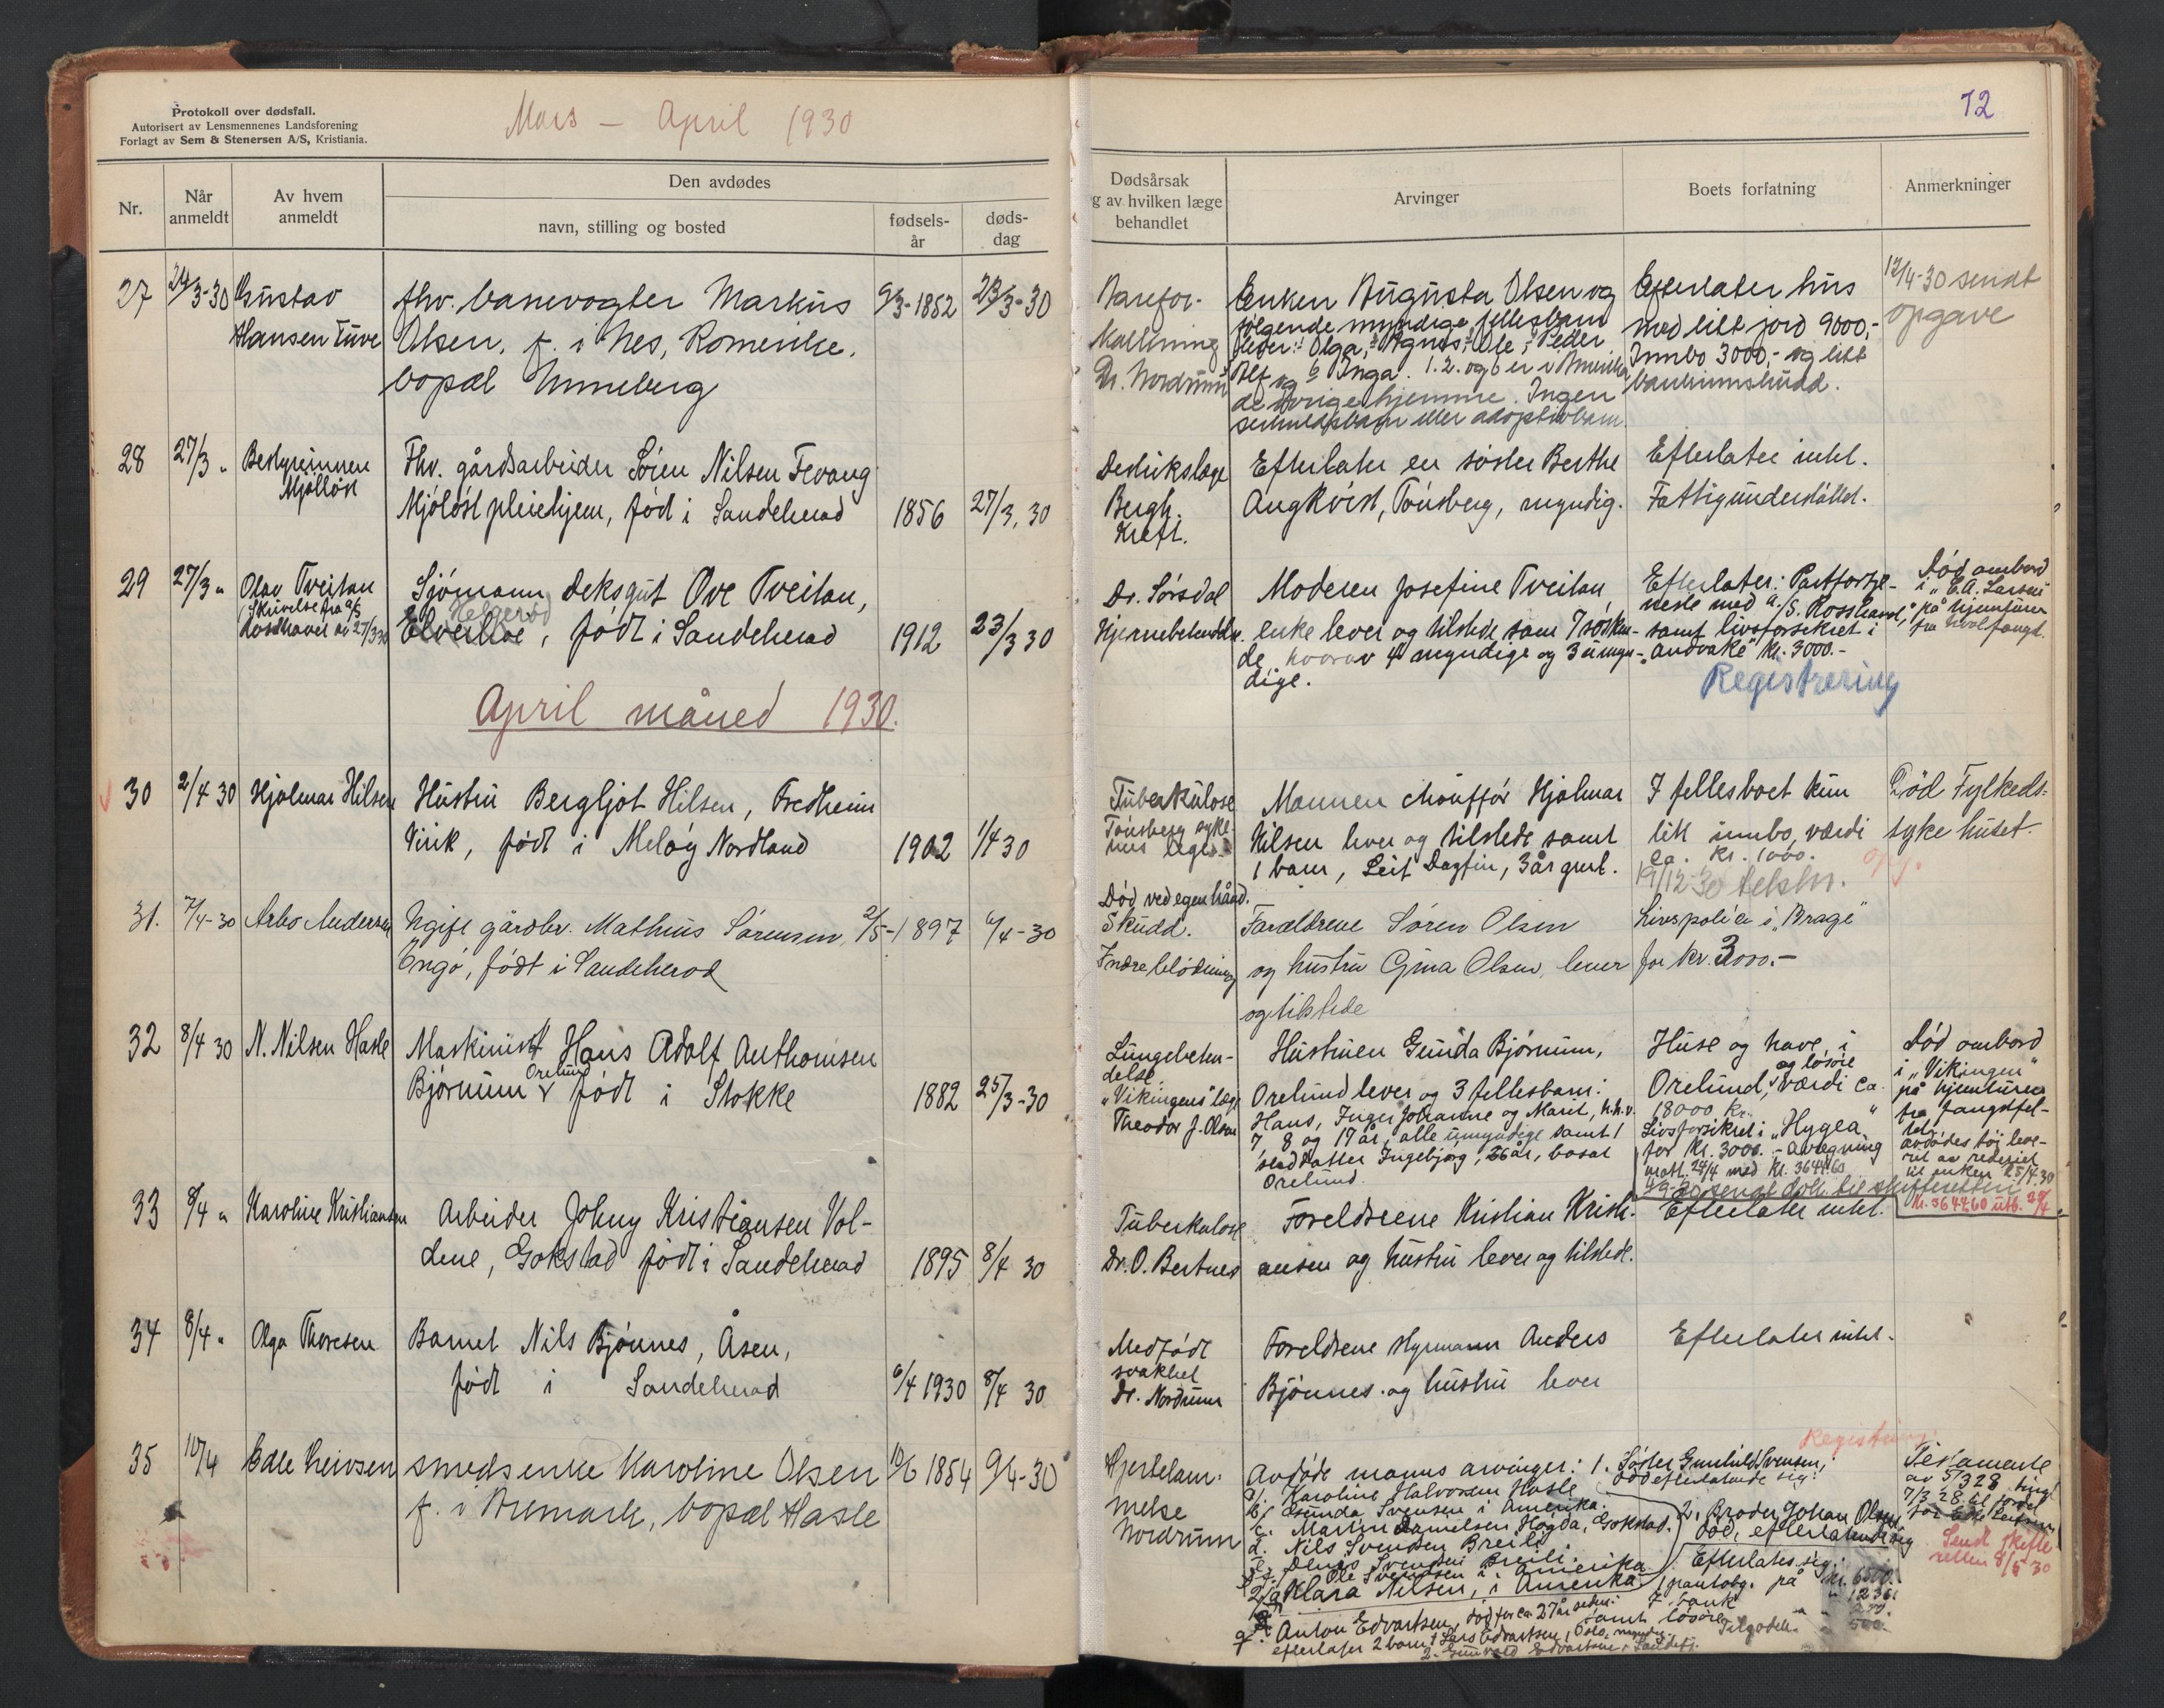 Protokoll over dødsfall.
Autorisert av Lensmennenes Landsforening
Forlagt av Sem & Stenersen A/S, Kristiania.
Mars — April 1930
Nr.
Når anmeldt
Av hvem anmeldt
Den avdødes
navn, stilling og bosted
fødsels-år
døds-dag
27 24/3-30 Gustav
Hansen Tuve
fhv. banevogter Markus
Olsen, f. i Nes, Romerike,
bopæl Unneberg
9/3-1852 23/3-30
28 27/3 " Bestyrerinnen
Mjølløst
Fhv. gårdsarbeider Sören Nilsen Fevang
Mjöløst pleiehjem, född i Sandeherad
1856 27/3, 30
29 27/3 " Olav Tveitan
(Skrivelse fra a/s
Rosshavet av 27/3 30
Sjömann, deksgut Ove Tveitan,
Helgerød
Elverhoe, född i Sandeherad
1912 23/3 30
April måned 1930.
30 2/4 30 Hjalmar Hilsen
Hustru Bergljot Hilsen, Fredheim
Virik, född i Meløy Nordland
1902 1/4 30
31. 7/4-30 Arbo Andersen
Ugift gårdbr. Mathius Sörensen,
Engø, född i Sandeherad
2/5-1897 6/4-30
32 8/4 30 N. Nilsen Hasle
Maskinist Hans Adolf Anthonisen
Orelund
Bjørnum, född i Stokke
1882 25/3-30
33 8/4 " Karoline Kristiansen
Arbeider Johny Kristiansen Vol-
dene, Gokstad född i Sandeherad
1895 8/4 30
34 8/4 " Olga Thoresen
Barnet Nils Bjønnes, Åsen,
född i Sandeherad
6/4 1930 8/4 30
35 10/4 Edle Leivsen
smedsenke Karoline Olsen
f. i Aremark, bopæl Hasle
10/6 1854 9/4-30
12
Dødsårsak
og av hvilken læge
behandlet
Arvinger
Boets forfatning
Anmerkninger
Åarefor-
kalkning
Dr. Nordrum
Enken Augusta Olsen og
følgende myndige fellesbarn
Olga, Agnes, Ole, Peder
Alf og 6 Inga. 1. 2. og 6 er i Amerika
de øvrige hjemme. Ingen
særkuldsbarn eller adoptivbarn.
Efterlater hus
med litt jord 9000,-
Innbo 3000,- og litt
bankinnskudd.
12/4-30 sendt
opgave
Destriktslæge
Bergh.
Kreft.
Efterlater en søster Berthe
Angkvist, Tønsberg, myndig.
Efterlater intet.
Fattigunderstøttet.
Dr. Sørsdal
Hjernebetendelse.
Moderen Josefine Tveitan,
enke lever og tilstede som 7 søsken-
de, hvorav 4 myndige og 3 umyn-
dige.
Efterlater: Partfortje-
neste med a/S. Rosshavet,
samt livsforsikret i
"Andvake" kr. 3000.-
Registrering
Död ombord
i "C.A. Larsen"
på hjemturen
fra hvalfangst.
Tuberkulose
Tønsberg syke-
hus læge
Mannen chauffør Hjalmar
Hilsen lever og tilstede samt
1 barn, Leif Dagfin, 3 år gml.
I fellesboet kun
litt innbo, værdi
ca. kr. 1000.
Död Fylkeds-
sykehuset.
Död ved egen hånd.
Skudd.
Indre blödning
Forældrene Søren Olsen
og hustru Gina Olsen, lever
og tilstede
Livspolice i "Brage"
for kr. 3000.-
Lungebeten-
delse
"Vikingens" læge
Theodor J. Olsen
Hustruen Gunda Bjørnum,
Orelund lever og 3 fellesbarn:
Hans, Inger Johanne og Marit, h.h.v.
7 8 og 17 år, alle umyndige samt 1
Ingebjørg, 26 år, bosat
Orelund.
Huse og have i
og løsøre
Orelund, værdi ca.
18000 kr.
Livsforsikret i "Hygea"
for kr. 3000.- avregning
mott. 24/4 med kr. 3644.60
Död ombord
i "Vikingen"
på hjemturen
fra fangstfel-
tet.
avdødes tøj leve-
rt av rederiet
til enken 25/4.30
Kr. 3644.60 utb. 29/4
Tuberkulose
Dr. O. Bertnes
Foreldrene Kristian Kristi-
ansen og hustru lever og tilstede.
Efterlater intet.
Medfødt
svakhet
Dr. Nordrum
Foreldrene Styrmann Anders
Bjønnes og hustru lever
Efterlater intet.
Hjertelam-
melse
Nordrum
Avdøde manns arvinger: 1. Søster Gunhild Svensen,
død efterlatende sig:
a/. Karoline Halvorsen Hasle
b/ Gunda Svensen i Amerika.
c. Martin Danielsen Høgda, Gokstad.
d. Nils Svendsen Breili
e. Svendsen Breili.
f. Ole Svendsen i Amerika
g Klara Nilsen, i Amerika
2. Broder Johan Olsen
død, efterlatende sig
Anton Edvartsen, død for ca. 27 år siden.
efterlater 2 barn 1 Lars Edvartsen, Oslo, myndig.
2. Edvartsen i Sandefj.
Registrering
Efterlater sig:
1 pantobg. på kr. 6500.
I bank " 1236
samt løsøre
Tilgodeh.
500.
Testamente
av 5/3 28, tingl.
7/3 28 til fordel
for Edle Leifsen
Sendt skifte-
retten 8/5 30